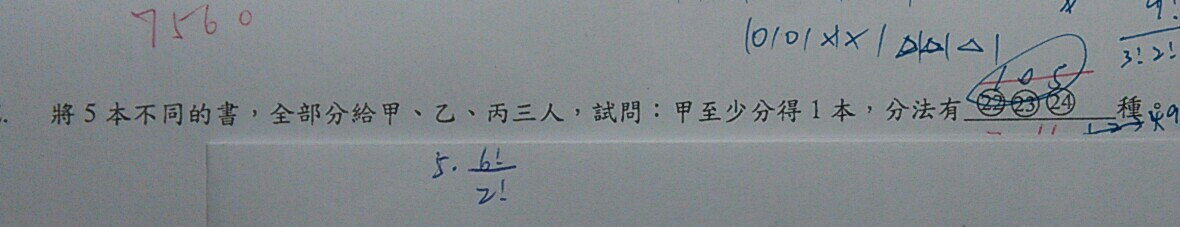 7560
|0|0|x|x|△|△|△|
9!
3!2!
將5本不同的書，全部分給甲、乙、丙三人，試問：甲至少分得1本，分法有㉒㉓㉔種。
105
5. 6!
2!